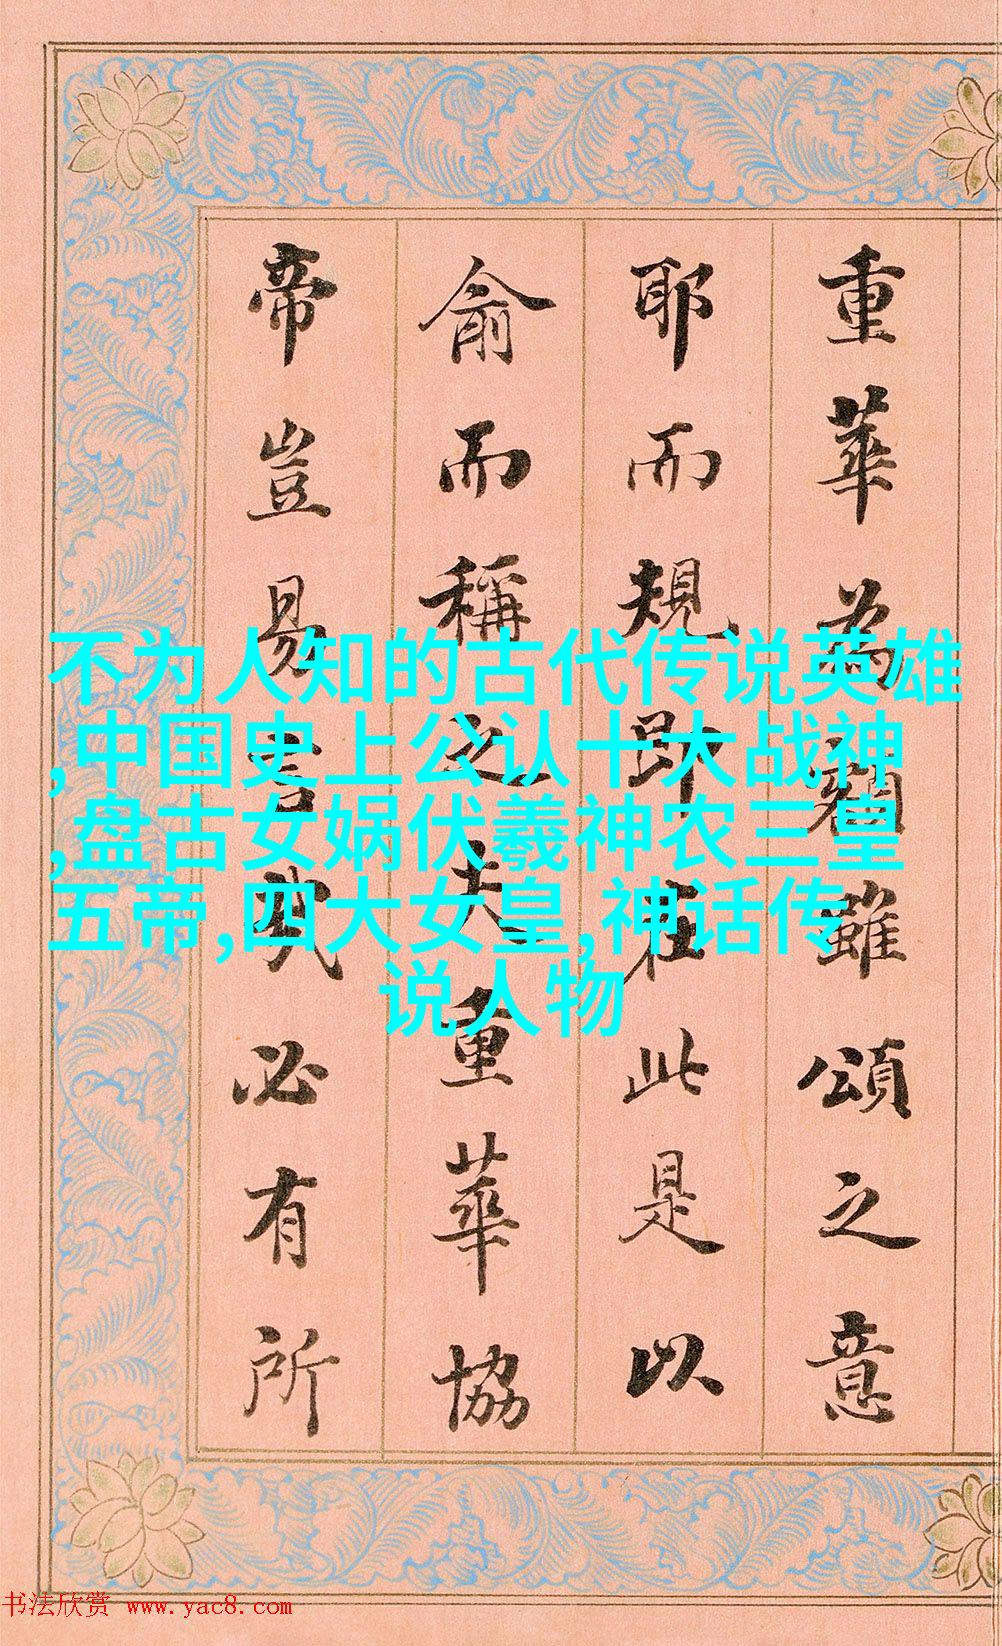 重華為雖頌之意
耶而規即在此是以
俞而稱之夫重華協
帝豈易言哉必有所
不为人知的古代传说英雄
,中国史上公认十大战神
,盘古女娲伏羲神农三皇
五帝,四大女皇,神话传
说人物
书法欣赏 www.yac8.com